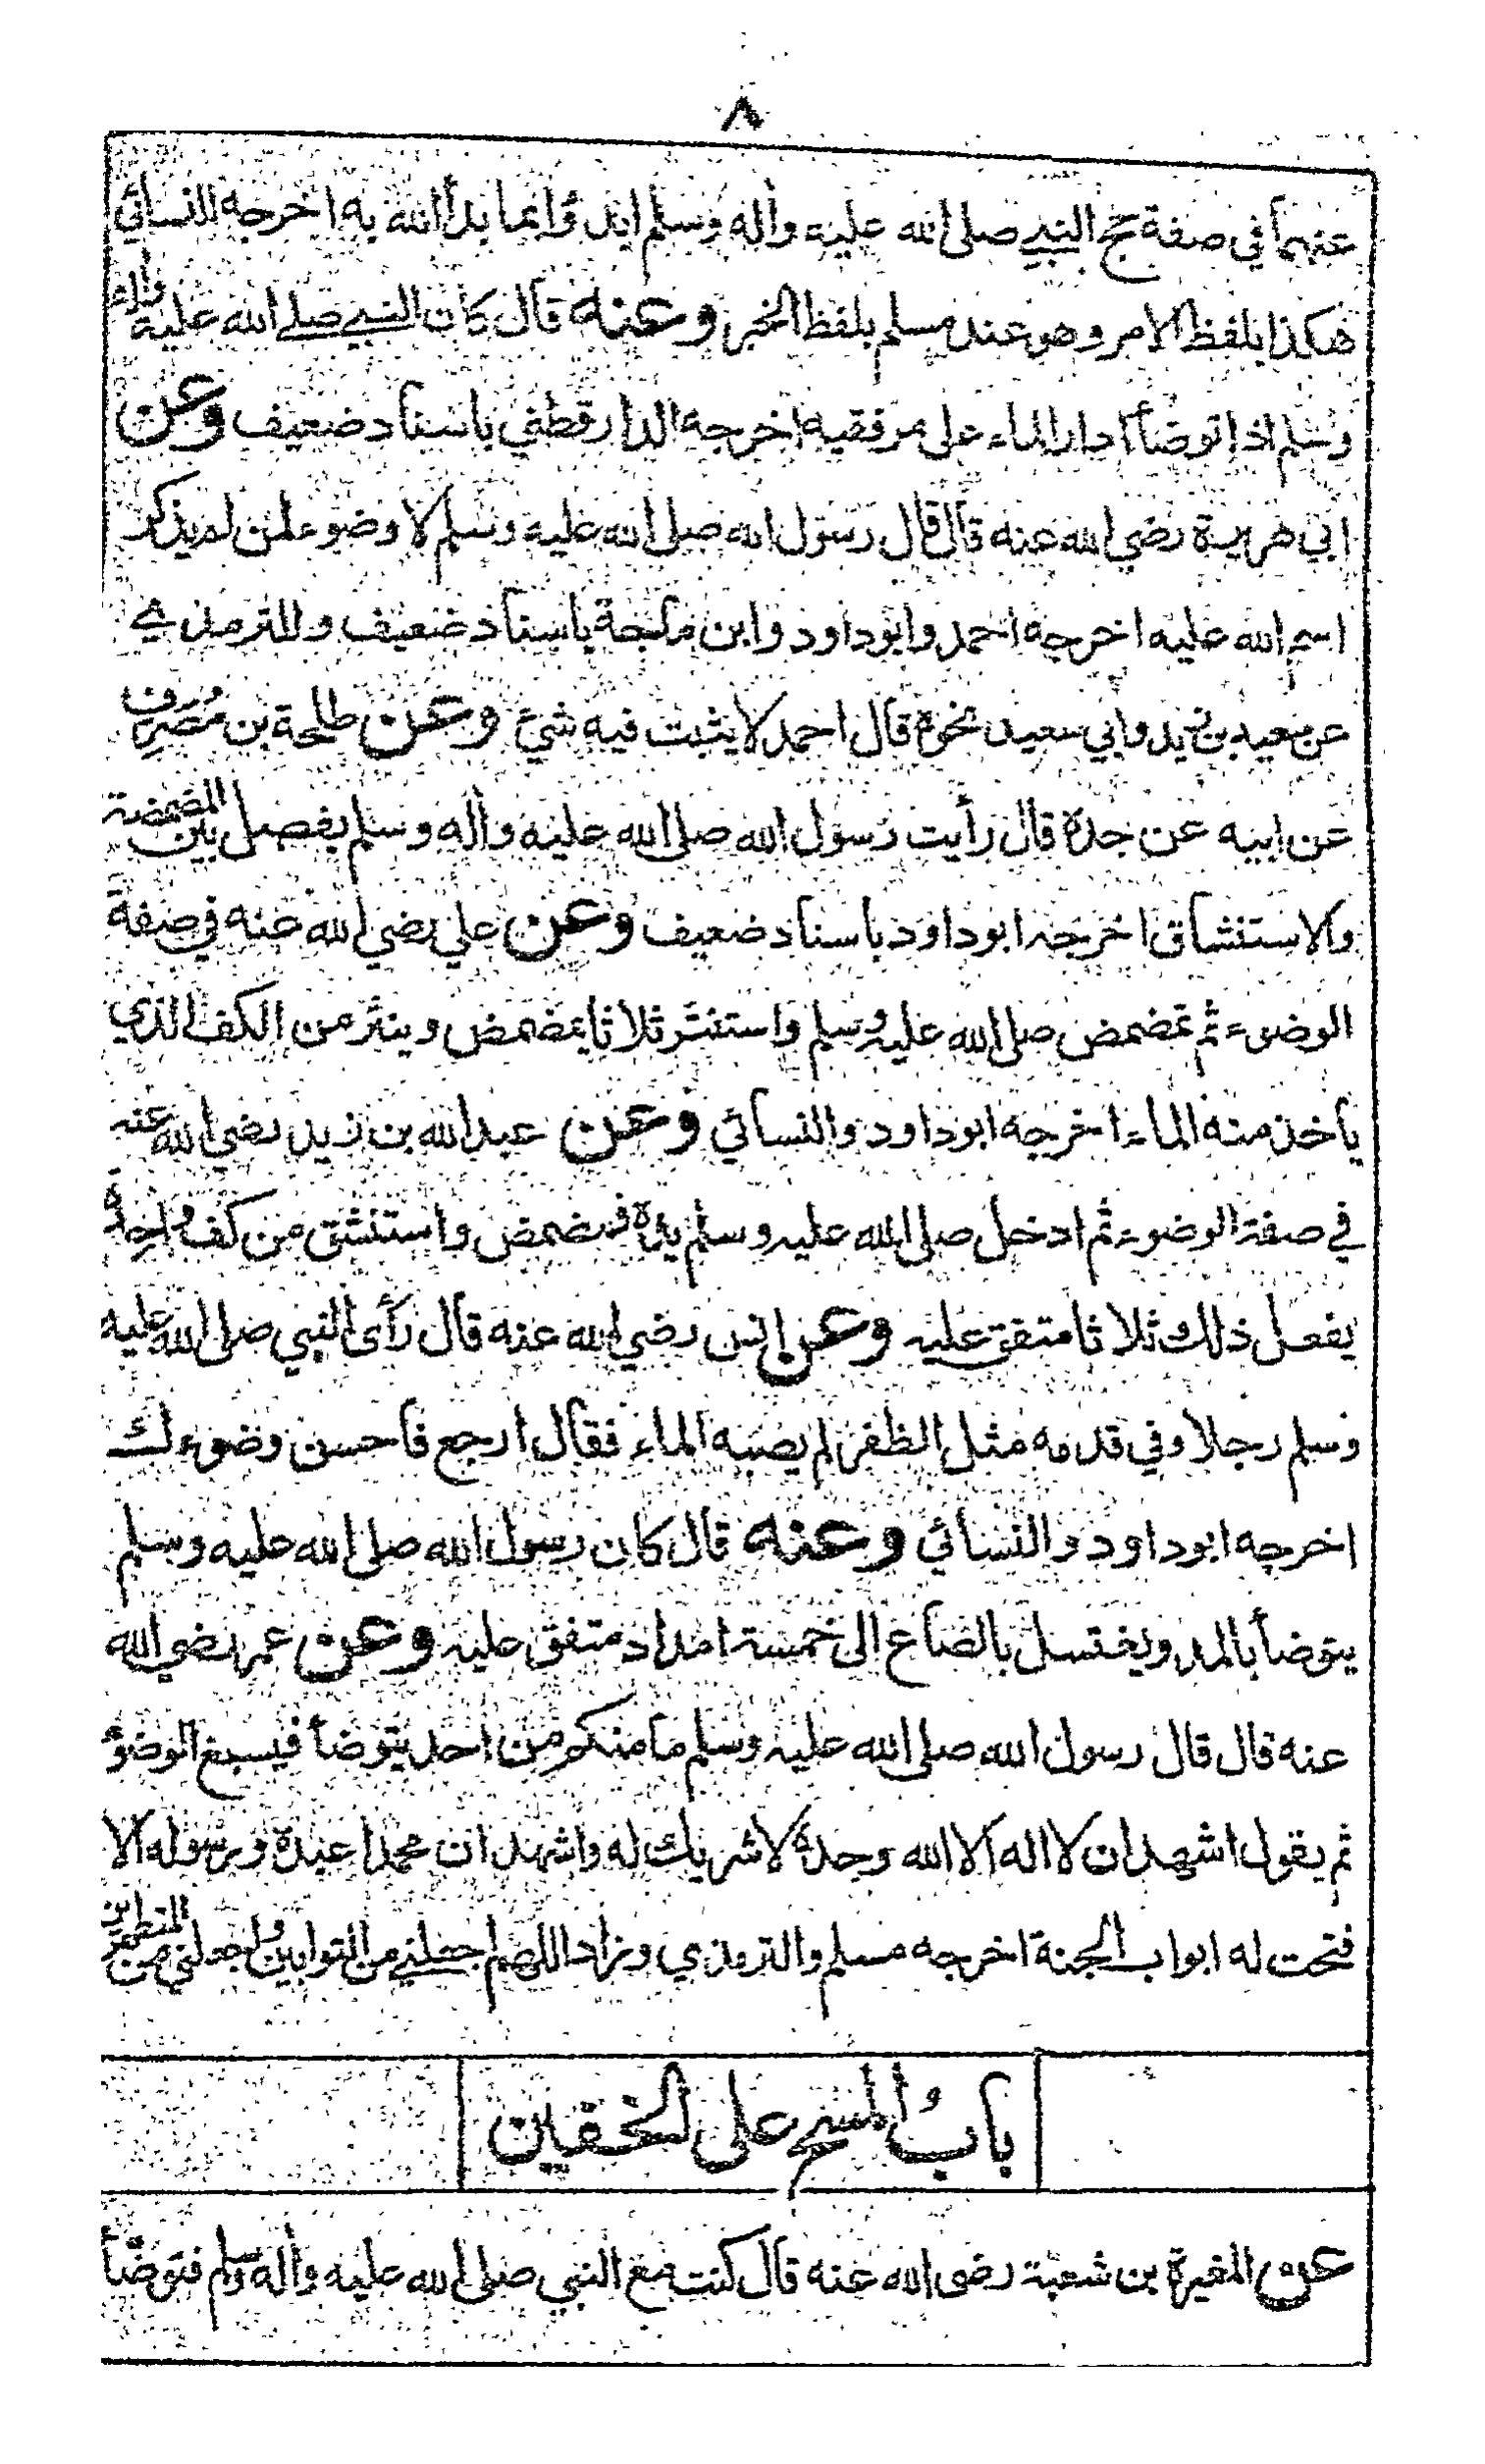 ٨
عنهما في صفة حج النبي صلى الله عليه وأله وسلم ابدؤا بما بدأ الله به اخرجه النسائي
هكذا بلفظ الامر وهو عند مسلم بلفظ الخبر وعنه قال كان النبي صلى الله عليه وأله
وسلم اذا توضأ ادار الماء على مرفقيه اخرجه الدارقطني باسناد ضعيف وعن
ابي هريرة رضي الله عنه قال قال رسول الله صلى الله عليه وسلم لا وضوء لمن لم يذكر
اسم الله عليه اخرجه احمد وابوداود وابن ماجة باسناد ضعيف وللترمذي
عن سعيد بن زيد وابي سعيد نحوه قال احمد لا يثبت فيه شيء وعن طلحة بن مُصَرِّف
عن ابيه عن جده قال رأيت رسول الله صلى الله عليه وأله وسلم يفصل بين المضمضة
والاستنشاق اخرجه ابوداود باسناد ضعيف وعن علي رضي الله عنه في صفة
الوضوء ثم تمضمض صلى الله عليه وسلم واستنثر ثلاثا يمضمض وينثر من الكف الذي
يأخذ منه الماء اخرجه ابوداود والنسائي وعن عبد الله بن زيد رضي الله عنه
في صفة الوضوء ثم ادخل صلى الله عليه وسلم يده فمضمض واستنشق من كف واحدة
يفعل ذلك ثلاثا متفق عليه وعن انس رضي الله عنه قال رأى النبي صلى الله عليه
وسلم رجلا وفي قدمه مثل الظفر لم يصبه الماء فقال ارجع فاحسن وضوءك
اخرجه ابوداود والنسائي وعنه قال كان رسول الله صلى الله عليه وسلم
يتوضأ بالمد ويغتسل بالصاع الى خمسة امداد متفق عليه وعن عمر رضي الله
عنه قال قال رسول الله صلى الله عليه وسلم ما منكم من احد يتوضأ فيسبغ الوضوء
ثم يقول اشهد ان لا اله الا الله وحده لا شريك له واشهد ان محمدا عبده ورسوله الا
فتحت له ابواب الجنة اخرجه مسلم والترمذي وزاد اللهم اجعلني من التوابين واجعلني من المتطهرين
بابُ المسح على الخفين
عن المغيرة بن شعبة رضى الله عنه قال كنت مع النبي صلى الله عليه وأله وسلم فتوضأ